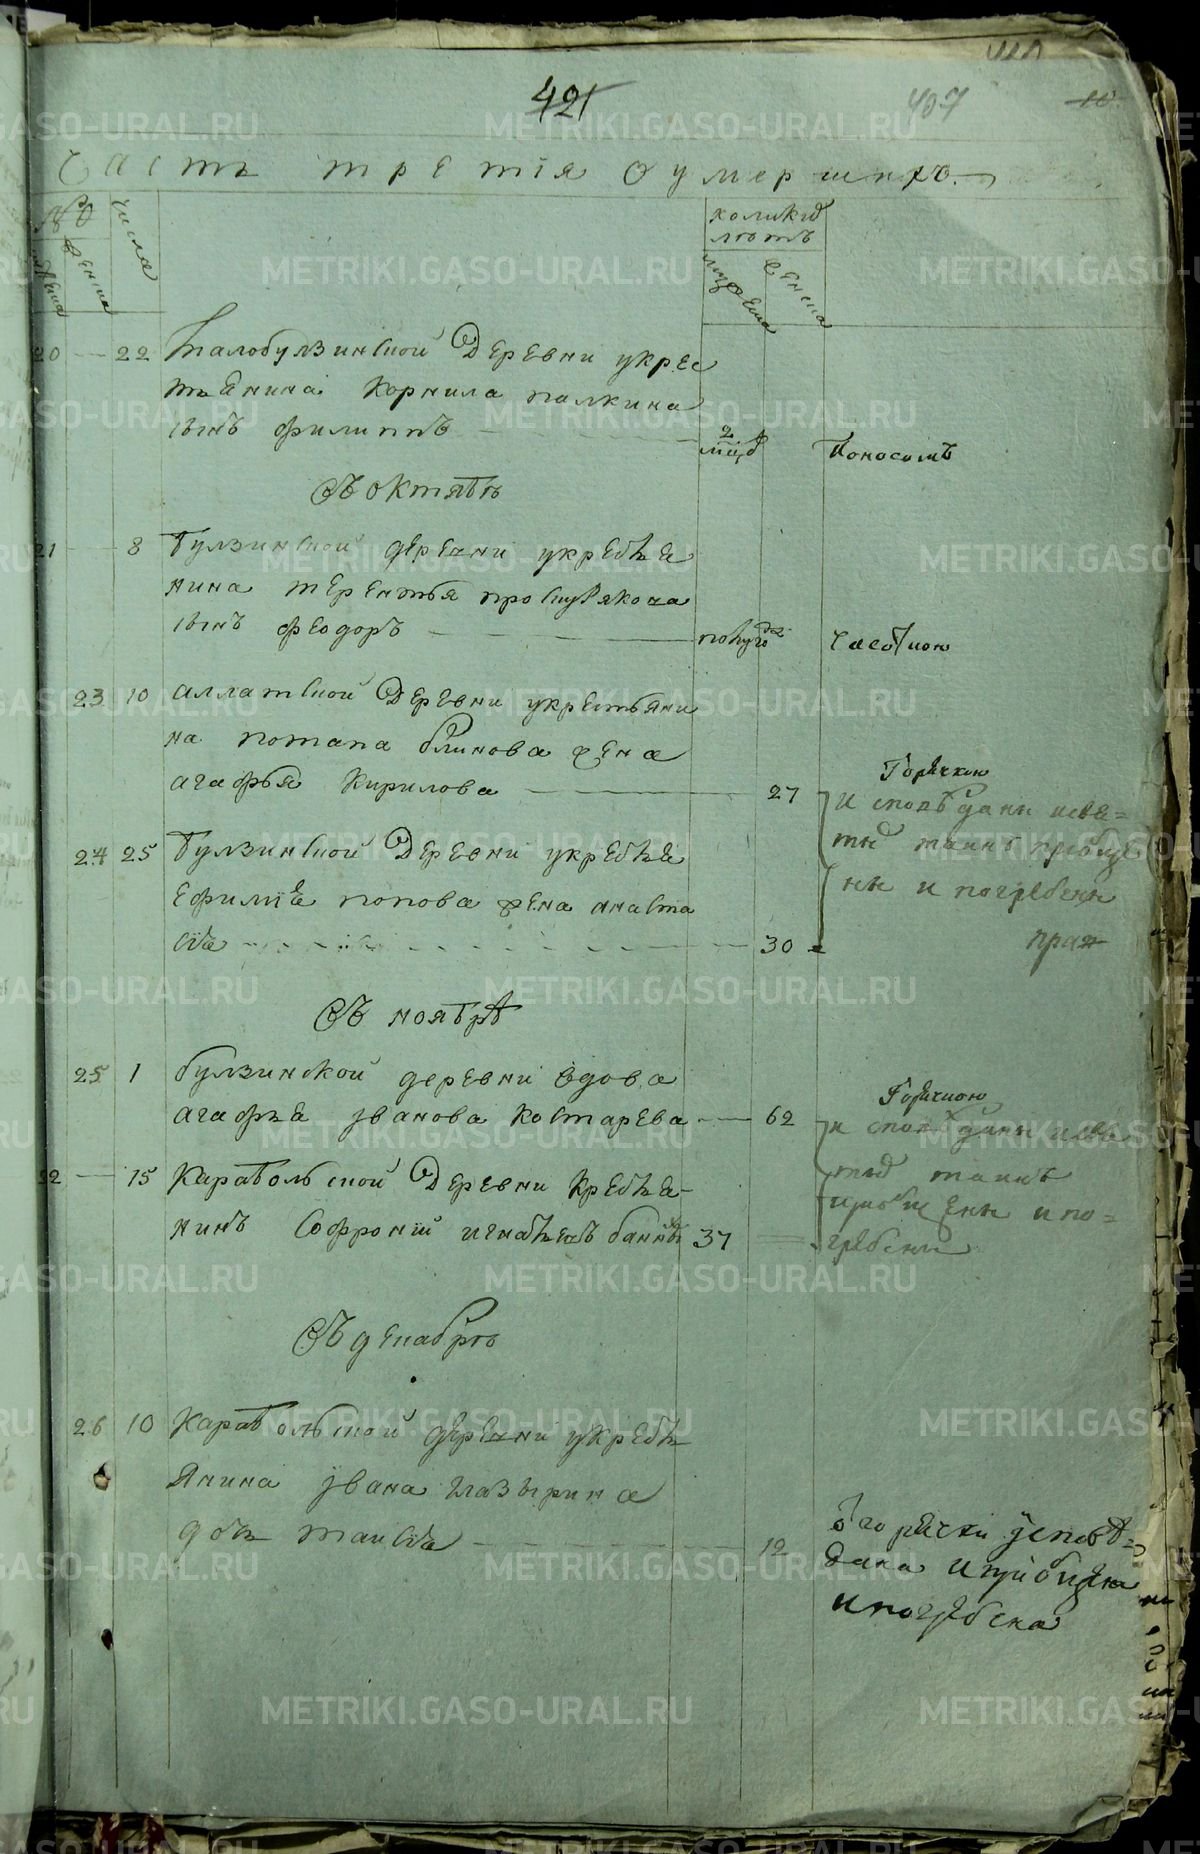 421
407
Часть третія оумершихъ
№
числа
коликихъ
летъ
мужеска
женска
20 22 Малобулзинской Деревни укрес
тьянина Корнила палкина
сынъ филиппъ 2 поносомъ
Въ октябрѣ
21 8 булзинской деревни укрестья
нина терентья проскурякова
сынъ феодоръ полугода
23 10 аллатской Деревни укрестьяни
на потапа блинова жена
агафья Кирилова 27
Горячкою
исповѣданы исвя=
тыхъ таинъ приобще
ны и погребены
24 25 булзинской Деревни укрестья
Ефиміа попова жена анаста
сія 30
Въ ноябрѣ
25 1 булзинской деревни вдова
агафья Иванова Костарева 62
Горячкою
исповѣданы исвя
тыхъ таинъ
приобщены ипо=
гребены
22 15 Карабольской Деревни Крестья-
нинъ Софроній игнатьевъ 37
Въ декабрѣ
26 10 Карабольской деревни укресть
янина Ивана глазырина
дочь таисія 12
горячки исповѣ=
дана иприобщена
ипогребена
METRIKI.GASO-URAL.RU